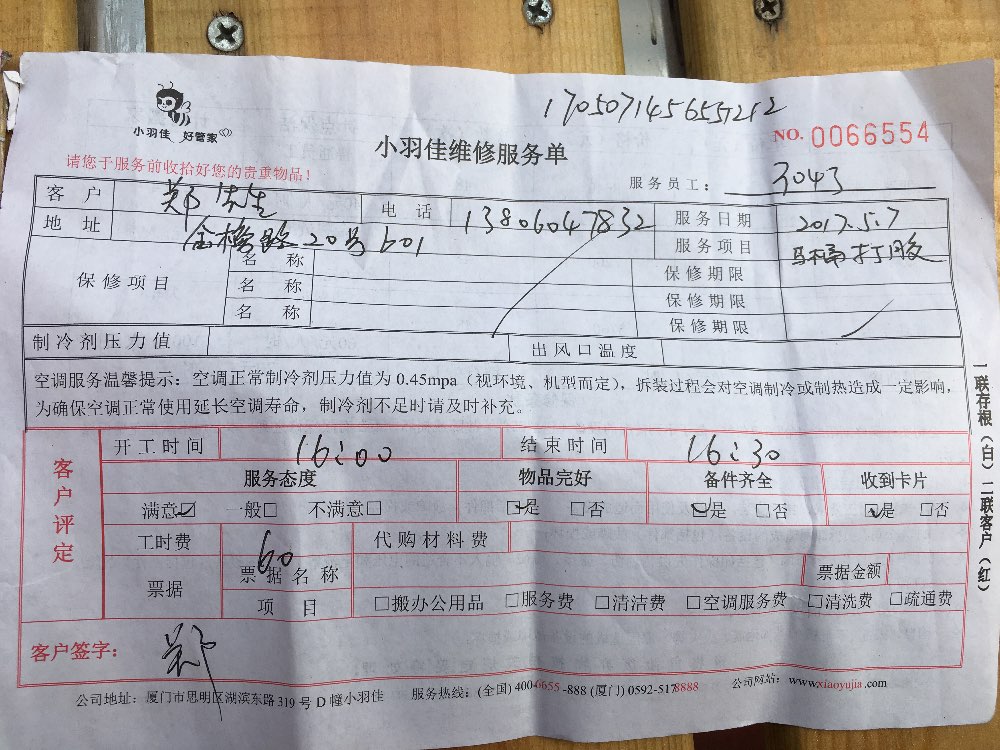 170507145655212
小羽佳 好管家
小羽佳维修服务单
NO. 0066554
请您于服务前收拾好您的贵重物品!
服务员工: 3043
客户 郑先生 电话 13806047832 服务日期 2017.5.7
地址 金榜路20号601 服务项目 马桶打胶
保修项目 名称 保修期限
名称 保修期限
名称 保修期限
制冷剂压力值 出风口温度
空调服务温馨提示:空调正常制冷剂压力值为 0.45mpa(视环境、机型而定),拆装过程会对空调制冷或制热造成一定影响,
为确保空调正常使用延长空调寿命,制冷剂不足时请及时补充。
客户评定
开工时间 16:00 结束时间 16:30
服务态度 物品完好 备件齐全 收到卡片
满意☑ 一般□ 不满意□ ☑是 □否 ☑是 □否 ☑是 □否
工时费 60 代购材料费
票据 票据名称 票据金额
项目 □搬办公用品 □服务费 □清洁费 □空调服务费 □清洗费 □疏通费
客户签字: 郑
公司地址:厦门市思明区湖滨东路 319 号 D 幢小羽佳 服务热线:(全国) 400-6655-888 (厦门) 0592-5178888 公司网站:www.xiaoyujia.com
一联存根(白)二联客户(红)